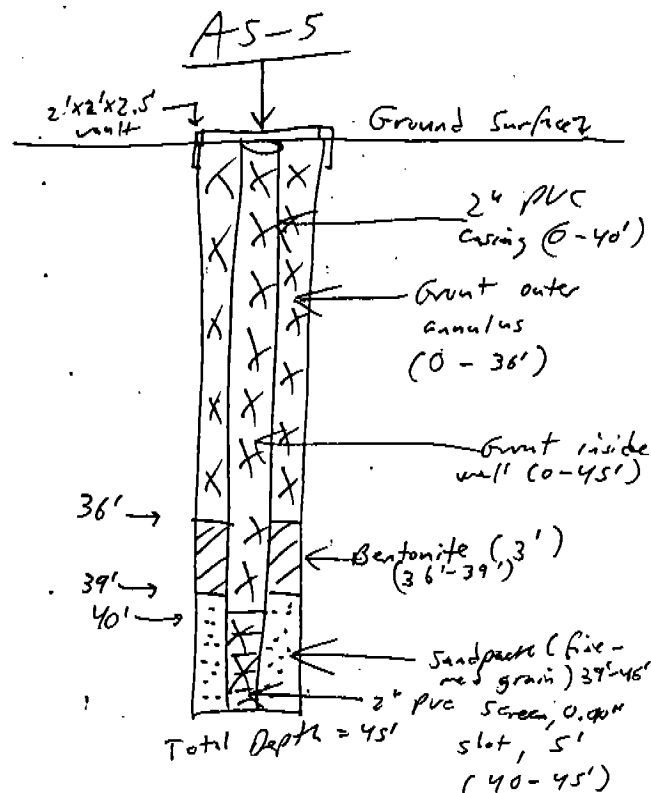 AS-5
2'x2'x2.5'
vault
Ground Surface
2" PVC
Casing (0-40')
Grout outer
annulus
(0 - 36')
Grout inside
well (0-45')
36'
Bentonite (3')
(36'-39')
39'
40'
Sandpack (fine-
med grain) 39'-45'
2" PVC Screen,
slot, 5'
(40-45')
Total Depth = 45'